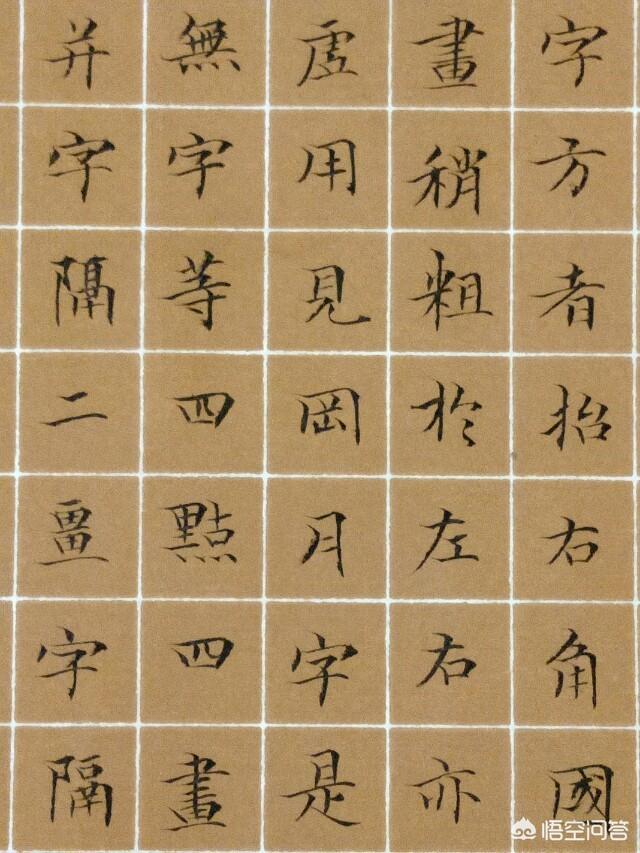 字方者抬右角國
畫稍粗於左右亦
虛用見岡月字是
無字等四點四畫
并字隔二畺字隔
悟空问答